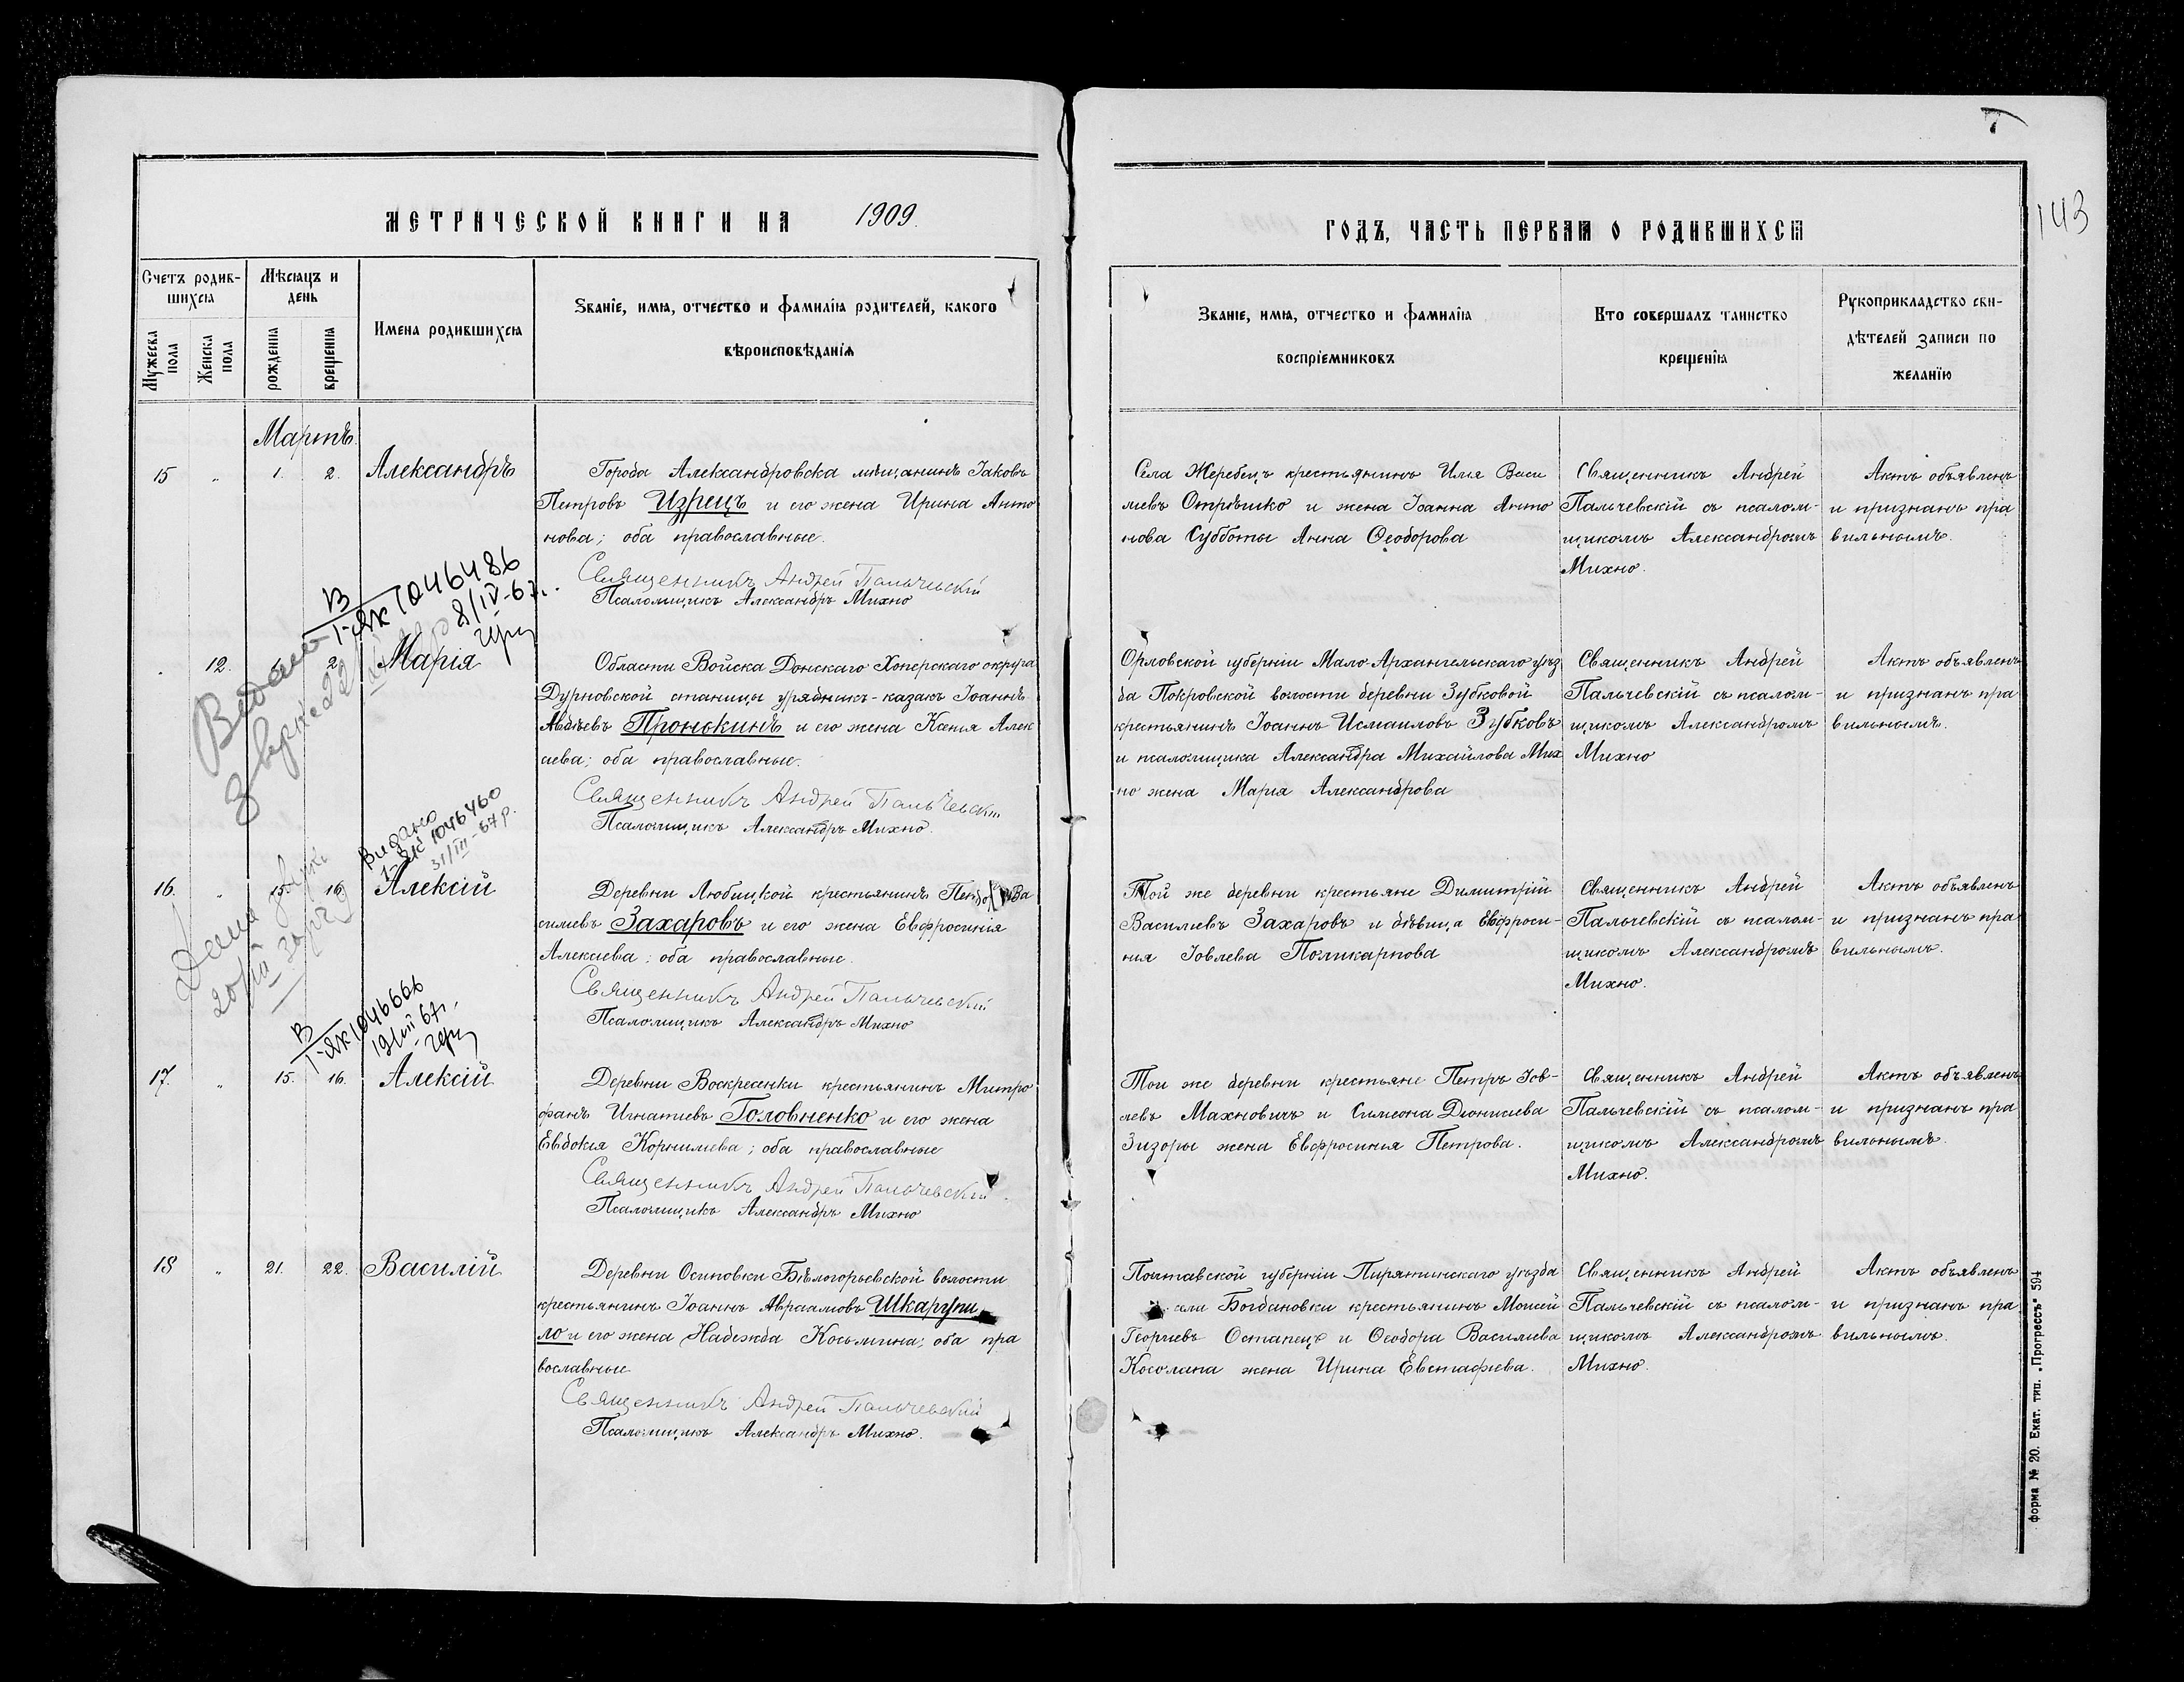 МЕТРИЧЕСКОЙ КНИГИ НА 1909.
Счетъ родив-
шихся
Мѣсяцъ и
день
Имена родившихся
Званіе, имя, отчество и фамилія родителей, какого
вѣроисповѣданія
Мужеска
пола
Женска
пола
рожденія
крещенія
Мартъ.
15 " 1. 2. Александръ
Города Александровска мѣщанинъ Іаковъ
Петровъ Изрецъ и его жена Ирина Анто
нова; оба православные.
Священникъ Андрей Пальчевскій
Псаломщикъ Александръ Михно
В
1-ЯК 1046486
8/IV-67.
12. 2. Марія
Области Войска Донскаго Хоперскаго округа
Дурновской станицы урядникъ-казакъ Іоаннъ
Авдѣевъ Пронскинъ и его жена Ксенія Алек
сѣева; оба православные.
Священникъ Андрей Пальчевскій
Псаломщикъ Александръ Михно.
Видано
1-ЯК 1046460
31/III-67р.
16. " 15. 16. Алексій
Деревни Любицкой крестьянинъ Ва
сильевъ Захаровъ и его жена Евфросинія
Алексѣева; оба православные.
Священникъ Андрей Пальчевскій
Псаломщикъ Александръ Михно
В
1-ЯК 1046666
19/VII 67г.
17. " 15. 16. Алексій
Деревни Воскресенки крестьянинъ Митро
фанъ Игнатіевъ Головненко и его жена
Евдокія Корниліева; оба православные
Священникъ Андрей Пальчевскій
Псаломщикъ Александръ Михно
18 " 21. 22. Василій
Деревни Осиповки Бѣлогорьевской волости
крестьянинъ Іоаннъ Авраамовъ Шкарупи
ло и его жена Надежда Косьмина; оба пра
вославные
Священникъ Андрей Пальчевскій
Псаломщикъ Александръ Михно.
7
143
ГОДЪ, ЧАСТЬ ПЕРВАЯ О РОДИВШИХСЯ
Званіе, имя, отчество и фамилія
воспріемниковъ
Кто совершалъ таинство
крещенія
Рукоприкладство сви-
дѣтелей записи по
желанію
Села Жеребецъ крестьянинъ Илія Васи
льевъ Отрѣшко и жена Іоанна Анто
нова Субботы Анна Ѳеодорова
Священникъ Андрей
Пальчевскій съ псалом-
щикомъ Александромъ
Михно.
Актъ объявленъ
и признанъ пра
вильнымъ.
Орловской губерніи Мало-Архангельскаго уѣз
да Покровской волости деревни Зубковой
крестьянинъ Іоаннъ Исмаиловъ Зубковъ
и псаломщика Александра Михайлова Мих
но жена Марія Александрова
Священникъ Андрей
Пальчевскій съ псалом-
щикомъ Александромъ
Михно
Актъ объявленъ
и признанъ пра
вильнымъ.
Той же деревни крестьяне Димитрій
Васильевъ Захаровъ и дѣвица Евфроси-
нія Іовлева Поликарпова
Священникъ Андрей
Пальчевскій съ псалом-
щикомъ Александромъ
Михно.
Актъ объявленъ
и признанъ пра
вильнымъ.
Той же деревни крестьяне Петръ Іов-
левъ Махновичъ и Симеона Діонисіева
Зизоры жена Евфросинія Петрова.
Священникъ Андрей
Пальчевскій съ псалом-
щикомъ Александромъ
Михно.
Актъ объявленъ
и признанъ пра
вильнымъ.
Полтавской губерніи Пирятинскаго уѣзда
села Богдановки крестьянинъ Моисей
Георгіевъ Остапецъ и Ѳеодора Василіева
Косолапа жена Ирина Евстафіева.
Священникъ Андрей
Пальчевскій съ псалом-
щикомъ Александромъ
Михно.
Актъ объявленъ
и признанъ пра
вильнымъ.
форма № 20. Екат. тип. „Прогрессъ" 594